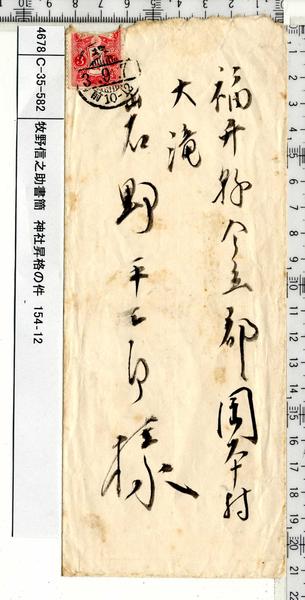 福井縣今立郡岡本村
大滝
岩野平三郎様
3.9.7
4678 C-35-582 牧野信之助書簡 神社昇格の件 154-12